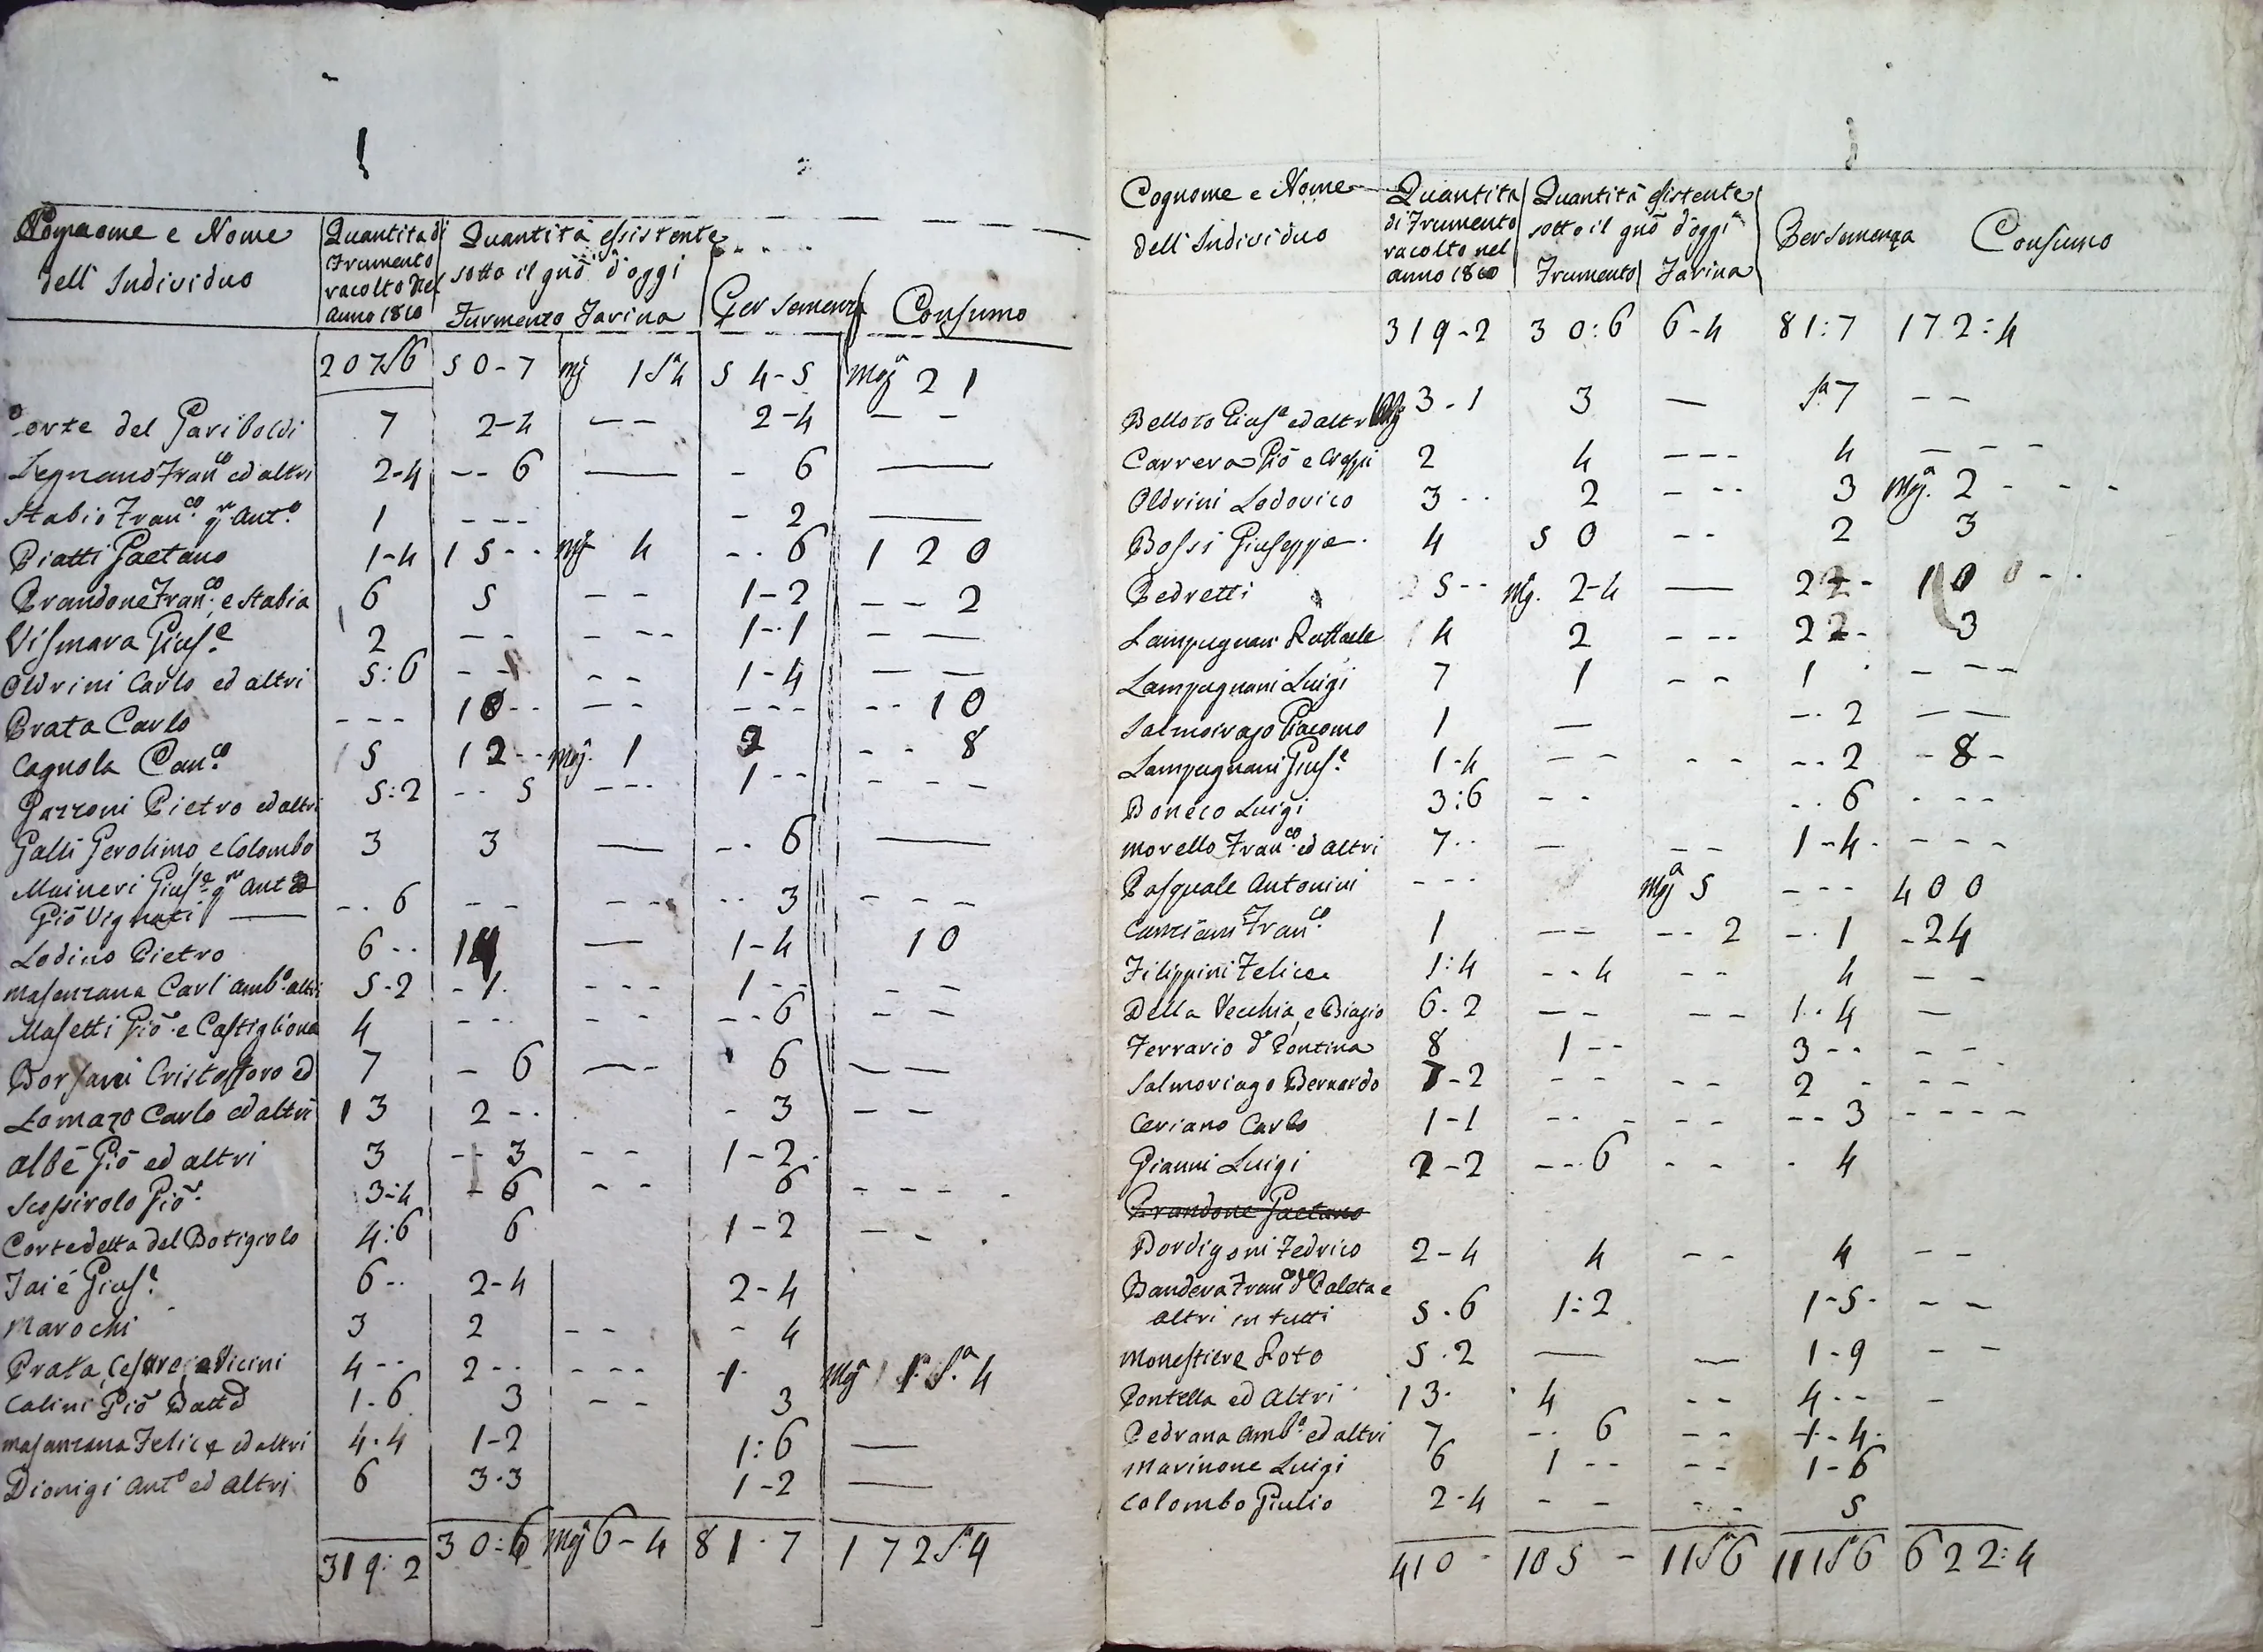 Cognome e Nome dell' Individuo | Quantita di Frumento racolto Nel anno 1810 | Quantità essistente sotto il gnō d'oggi | Furmento | Farina | Per Semenza | Consumo
207 Sa 6 | 50-7 | Mg 1 Sa 4 | 54-5 | Mga 21
Corte del Gariboldi | 7 | 2-4 | -- | 2-4 | - -
Legnano Franco ed altri | 2-4 | -- 6 | — | - 6 | —
Stabio Franco qm Anto | 1 | --- | | - 2 | —
Piatti Gaetano | 1-4 | 15-- | Mg 4 | -- 6 | 120
Prandone Franco e Stabia | 6 | 5 | -- | 1-2 | -- 2
Vismara Giuse | 2 | -- | --- | 1-1 | - —
Oldrini Carlo ed altri | 5:6 | -- | -- | 1-4 | — —
Prata Carlo | --- | 10-- | -- | --- | -- 10
Cagnola Canco | 5 | 12-- | Mg. 1 | 2 | -- 8
Gazzoni Pietro ed altri | 5:2 | -- 5 | --- | 1-- | ---
Galli Gerolimo e Colombo | 3 | 3 | — | -- 6 | —
Maineri Giuse qm Anto
Giō Vignati — | -- 6 | -- | --- | -- 3 | ---
Lodino Pietro | 6-- | 14 | — | 1-4 | 10
Masenzana Carl' Ambo altri | 5-2 | -1. | --- | 1-- | --
Masetti Giō e Castigliona | 4 | --- | -- | -- 6 | --
Borsani Cristofforo ed | 7 | - 6 | --- | 6 | — —
Lomazo Carlo ed altri | 13 | 2-- | | - 3 | --
Albé Giō ed altri | 3 | -- 3 | -- | 1-2
Scossirolo Giō | 3-4 | - 6 | -- | 6 | ----
Corte detta del Botigiolo | 4:6 | 6 | | 1-2 | --
Taié Giuse | 6-- | 2-4 | | 2-4
Marochi | 3 | 2 | -- | - 4
Prata Cesare e Vicini | 4-- | 2-- | --- | -1- | Mga 1 Sa 4
Calini Giō Batta | 1-6 | 3 | -- | 3
Masanzana Felice ed altri | 4-4 | 1-2 | | 1:6 | —
Dionigi Anto ed Altri | 6 | 3-3 | | 1-2 | —
319:2 | 30:6 | Mga 6-4 | 81-7 | 172 Sa 4
Cognome e Nome dell' Individuo | Quantita di Frumento racolto nel anno 1810 | Quantità esistente sotto il gnō d'oggi | Frumento | Farina | Per Semenza | Consumo
319-2 | 30:6 | 6-4 | 81:7 | 172:4
Belloto Giuse ed altri | Mg 3-1 | 3 | — | Sa 7 | --
Carrera Giō e Crespi | 2 | 4 | --- | 4 | ---
Oldrini Lodovico | 3-- | 2 | --- | 3 | Mga 2 ---
Bossi Giuseppe | 4 | 50 | -- | 2 | 3
Pedretti | 5-- | Mg. 2-4 | — | 22- | 100--
Lampugnani Raffaele | 4 | 2 | --- | 22- | 3
Lampugnani Luigi | 7 | 1 | -- | 1 | ---
Salmoirago Giacomo | 1 | — | | -- 2 | ——
Lampugnani Giuse | 1-4 | -- | -- | -- 2 | -8-
Boneco Luigi | 3:6 | -- | | -- 6 | ---
Morello Franco ed altri | 7-- | — | -- | 1-4- | ---
Pasquale Antonini | --- | | Mga 5 | --- | 400
Canziani Franco | 1 | -- | -- 2 | -- 1 | -24
Filippini Felice | 1:4 | -- 4 | -- | 4 | --
Della Vecchia, e Biagio | 6-2 | -- | -- | 1-4 | —
Ferrario d° Pontina | 8 | 1-- | | 3-- | --
Salmoriago Bernardo | 7-2 | -- | -- | 2 - | --
Ceriano Carlo | 1-1 | --- | -- | -- 3 | ----
Gianni Luigi | 2-2 | --- 6 | -- | - 4
Prandone Gaetano
Bordigoni Fedrico | 2-4 | 4 | -- | 4 | --
Bandera Franco d° Paleta e
altri in tutti | 5-6 | 1:2 | | 1-5- | --
Monestiere Roto | 5-2 | — | — | 1-9 | --
Pontella ed Altri | 13- | 4 | -- | 4-- | -
Pedrana Ambo ed altri | 7 | -- 6 | -- | 1-4-
Marinone Luigi | 6 | 1-- | -- | 1-6
Colombo Giulio | 2-4 | -- | -- | 5
410- | 105- | 11 Sa 6 | 111 Sa 6 | 622:4